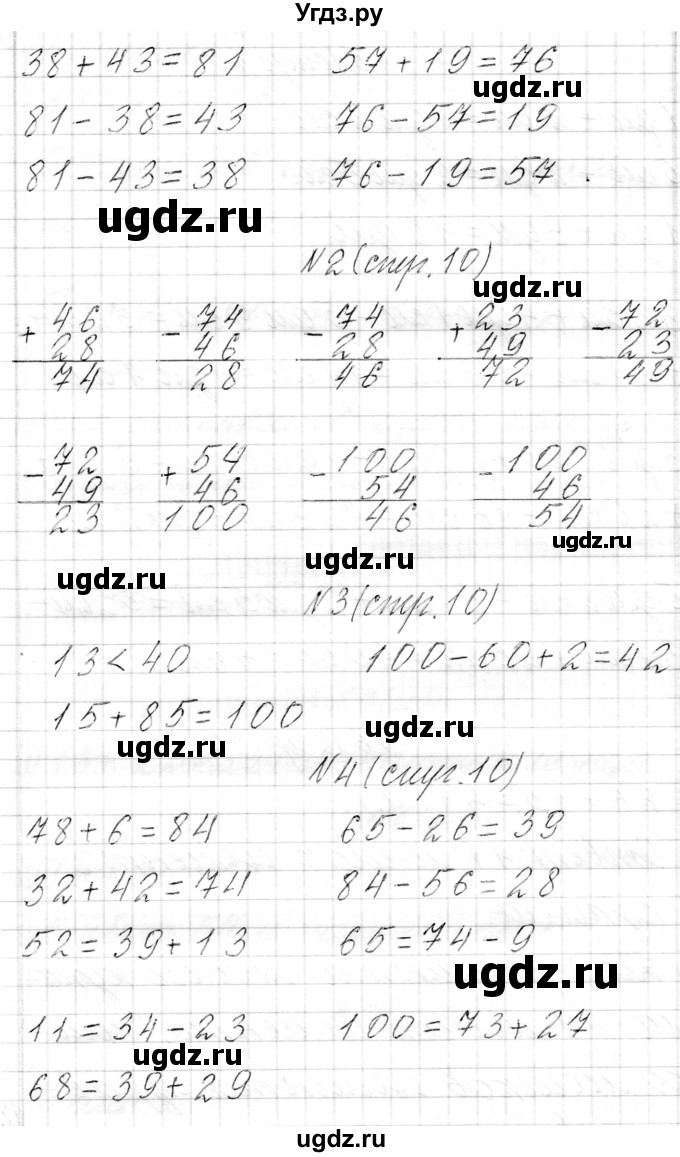 Угдз.ру
38 + 43 = 81 57 + 19 = 76
ugdz.ru
81 - 38 = 43 76 - 57 = 19
81 - 43 = 38 76 - 19 = 57 .
ugdz.ru
№2 (стр. 10)
ugdz.ru
+ 46 - 74 - 74 + 23 - 72
28 46 28 49 23
74 28 46 72 49
- 72 + 54 - 100 - 100
49 46 54 46
23 100 46 54
ugdz.ru
ugdz.ru
ugdz.ru
№3 (стр. 10)
13 < 40 100 - 60 + 2 = 42
15 + 85 = 100
ugdz.ru
ugdz.ru
№4 (стр. 10)
78 + 6 = 84 65 - 26 = 39
32 + 42 = 74 84 - 56 = 28
52 = 39 + 13 65 = 74 - 9
ugdz.ru
11 = 34 - 23 100 = 73 + 27
ugdz.ru
68 = 39 + 29
ugdz.ru